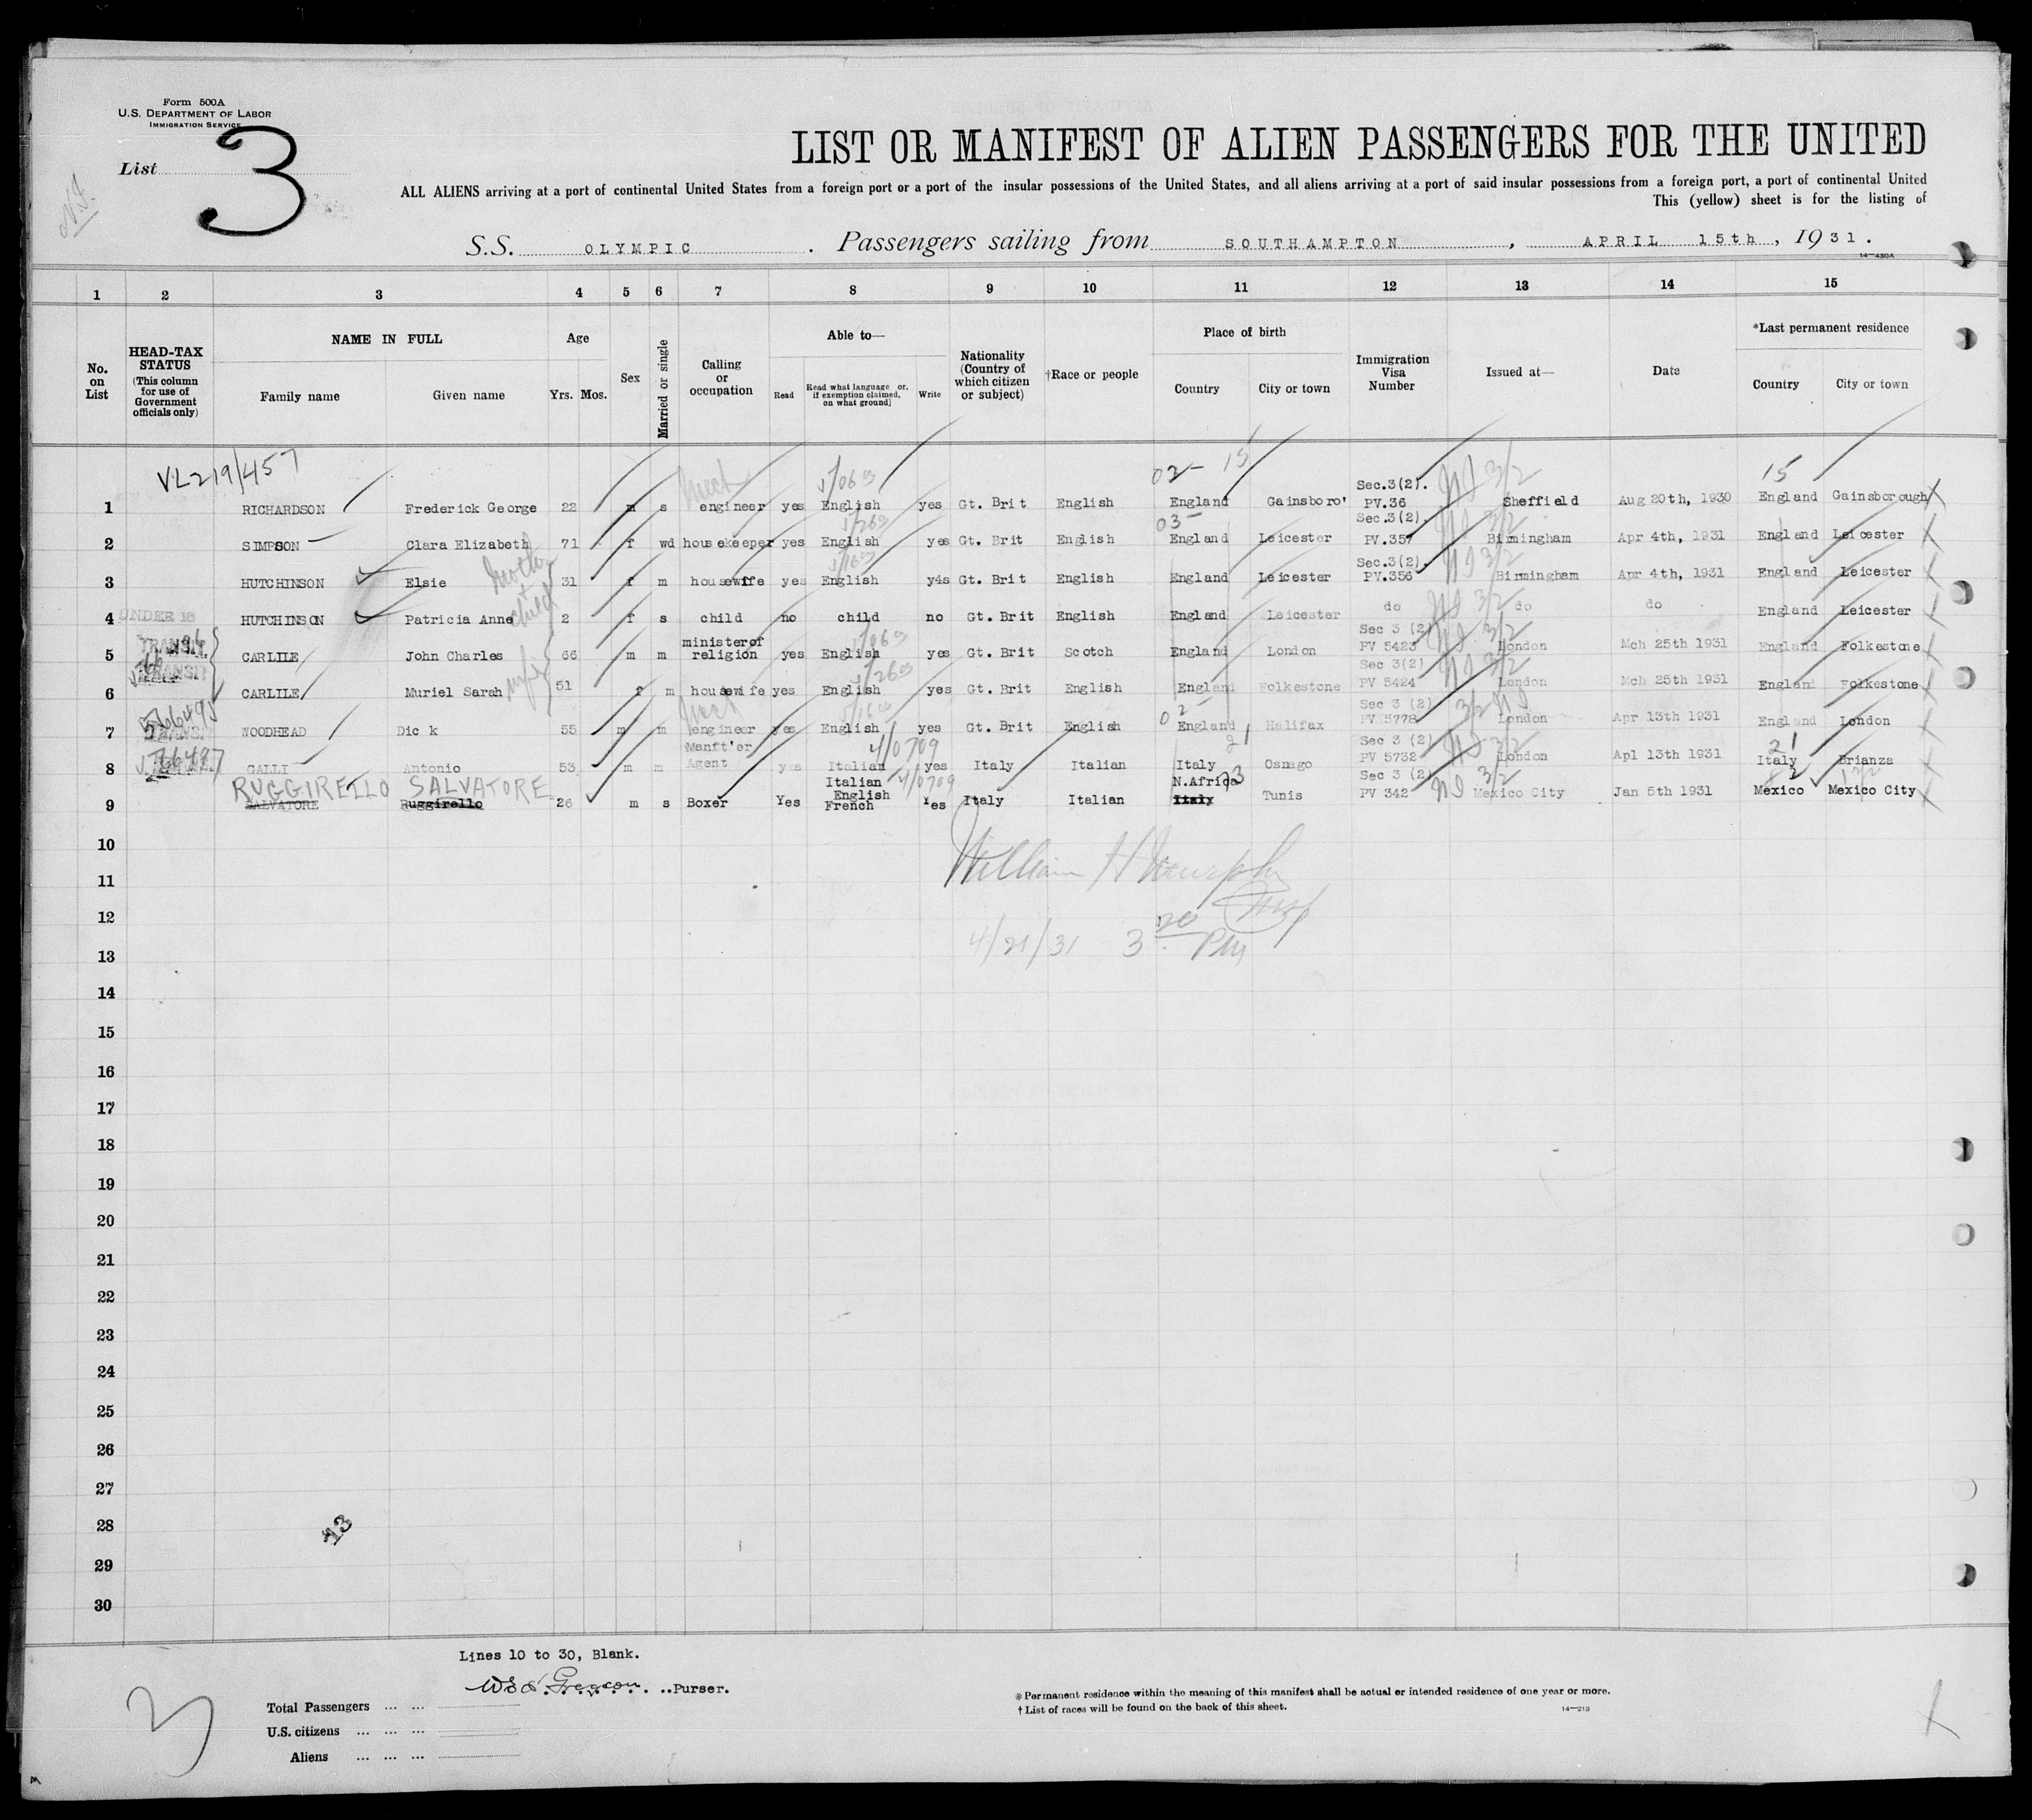 Form 500A
U.S. DEPARTMENT OF LABOR
IMMIGRATION SERVICE
List 3
LIST OR MANIFEST OF ALIEN PASSENGERS FOR THE UNITED
ALL ALIENS arriving at a port of continental United States from a foreign port or a port of the insular possessions of the United States, and all aliens arriving at a port of said insular possessions from a foreign port, a port of continental United
This (yellow) sheet is for the listing of
S.S. OLYMPIC. Passengers sailing from SOUTHAMPTON, APRIL 15th, 1931.
14—430A
1 2 3 4 5 6 7 8 9 10 11 12 13 14 15
No. on List
HEAD-TAX STATUS (This column for use of Government officials only)
NAME IN FULL
Family name Given name
Age
Yrs. Mos.
Sex
Married or single
Calling or occupation
Able to—
Read Read what language or, if exemption claimed, on what ground] Write
Nationality (Country of which citizen or subject)
†Race or people
Place of birth
Country City or town
Immigration Visa Number
Issued at—
Date
*Last permanent residence
Country City or town
VL219/457
02- 15 15
1 RICHARDSON Frederick George 22 m s engineer yes English yes Gt. Brit English England Gainsboro' Sec.3(2). PV.36 Sheffield Aug 20th, 1930 England Gainsborough
03-
2 SIMPSON Clara Elizabeth 71 f wd housekeeper yes English yes Gt. Brit English England Leicester Sec.3(2). PV.357 Birmingham Apr 4th, 1931 England Leicester
3 HUTCHINSON Elsie 31 f m housewife yes English y4s Gt. Brit English England Leicester Sec.3(2). PV.356 Birmingham Apr 4th, 1931 England Leicester
mother + child
4 UNDER 16 HUTCHINSON Patricia Anne 2 f s child no child no Gt. Brit English England Leicester do do do England Leicester
5 TRANSIT CARLILE John Charles 66 m m minister of religion yes English yes Gt. Brit Scotch England London Sec 3 (2) PV 5423 London Mch 25th 1931 England Folkestone
6 TRANSIT CARLILE Muriel Sarah wife 51 f m housewife yes English yes Gt. Brit English England Folkestone Sec 3(2) PV 5424 London Mch 25th 1931 England Folkestone
02-
7 TRANSIT WOODHEAD Dick 55 m m engineer yes English yes Gt. Brit English England Halifax Sec 3 (2) PV 5778 London Apr 13th 1931 England London
21 21
8 GALLI Antonio 53 m m Manft'er Agent yes Italian yes Italy Italian Italy Osnago Sec 3 (2) PV 5732 London Apl 13th 1931 Italy Brianza
RUGGIRELLO SALVATORE
9 SALVATORE Ruggirello 26 m s Boxer Yes Italian English French Yes Italy Italian N.Africa Italy Tunis Sec 3 (2) PV 342 Mexico City Jan 5th 1931 Mexico Mexico City
10
William H Murphy
11
12
4/21/31 3 20 PM
13
14
15
16
17
18
19
20
21
22
23
24
25
26
27
28
29
30
Lines 10 to 30, Blank.
..Purser.
Total Passengers ... ...
U.S. citizens ... ... ...
Aliens ... ... ...
3
* Permanent residence within the meaning of this manifest shall be actual or intended residence of one year or more.
† List of races will be found on the back of this sheet.
14—213